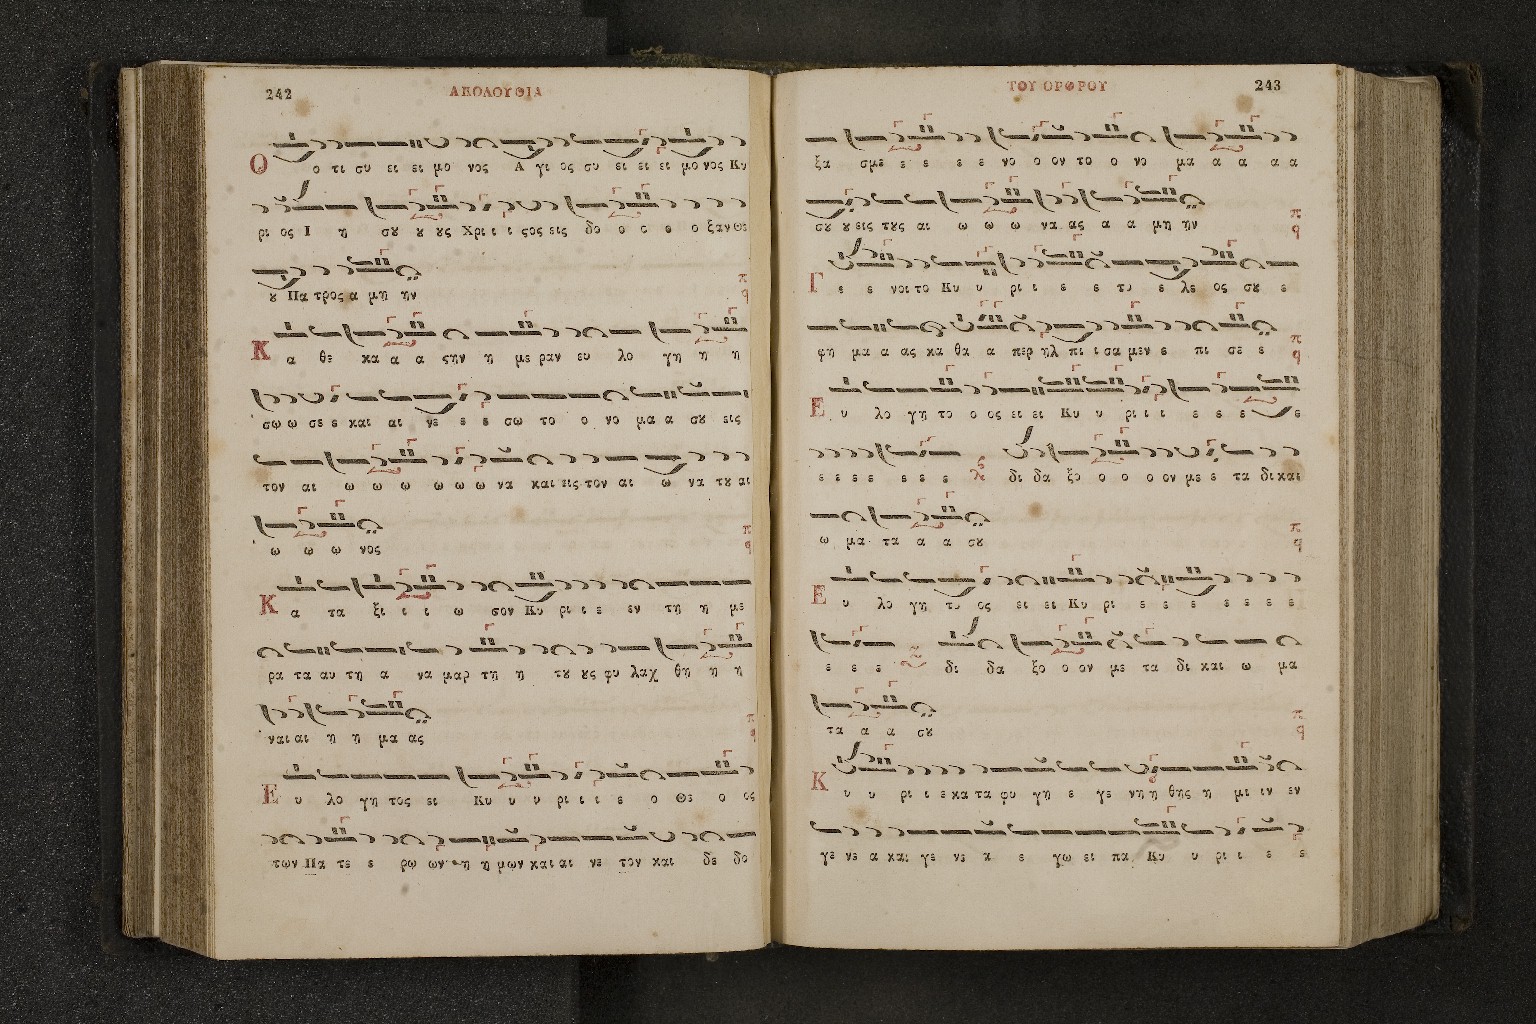 242 ΑΚΟΛΟΥΘΙΑ
Ο ο τι συ ει ει μο νος Α γι ος συ ει ει ει μο νος Κυ
ρι ος Ι η σȣ ȣ ȣς Χρι ι ι ςος εις δο ο ο ο ο ξαν Θε
ȣ Πα τρος α μη ην
Κ α θε κα α α ςην η με ραν ευ λο γη η η
σω ω σε ε και αι νε ε ε σω το ο νο μα α σȣ εις
τον αι ω ω ω ω ω ω να και εις τον αι ω να τȣ αι
ω ω ω νος
Κ α τα ξι ι ι ω σον Κυ ρι ι ε εν τη η με
ρα τα αυ τη α να μαρ τη η τȣ ȣς φυ λαχ θη η η
ναι αι η η μα ας
Ε υ λο γη τος ει Κυ υ υ ρι ι ι ε ο Θε ο ος
των Πα τε ε ρω ων η η μων και αι νε τον και δε δο
ΤΟΥ ΟΡΘΡΟΥ 243
ξα σμε ε ε ε ε νο ο ον το ο νο μα α α α α
σȣ ȣ εις τȣς αι ω ω ω να ας α α μη ην
Γ ε ε νοι το Κυ υ ρι ι ε ε το ε λε ος σȣ ε
φη μα α ας κα θα α περ ηλ πι ι σα μεν ε πι σε ε
Ε υ λο γη το ο ος ει ει Κυ υ ρι ι ι ε ε ε ε
ε ε ε ε ε ε ε δι δα ξο ο ο ο ον με ε τα δι και
ω μα τα α α σȣ
Ε υ λο γη το ος ει ει Κυ ρι ε ε ε ε ε ε ε
ε ε ε δι δα ξο ο ον με τα δι και ω μα
τα α α σȣ
Κ υ υ ρι ι ε κα τα φυ γη ε γε νη η θης η μι ιν εν
γε νε α και γε νε α ε γω ει πα Κυ υ ρι ι ε ε